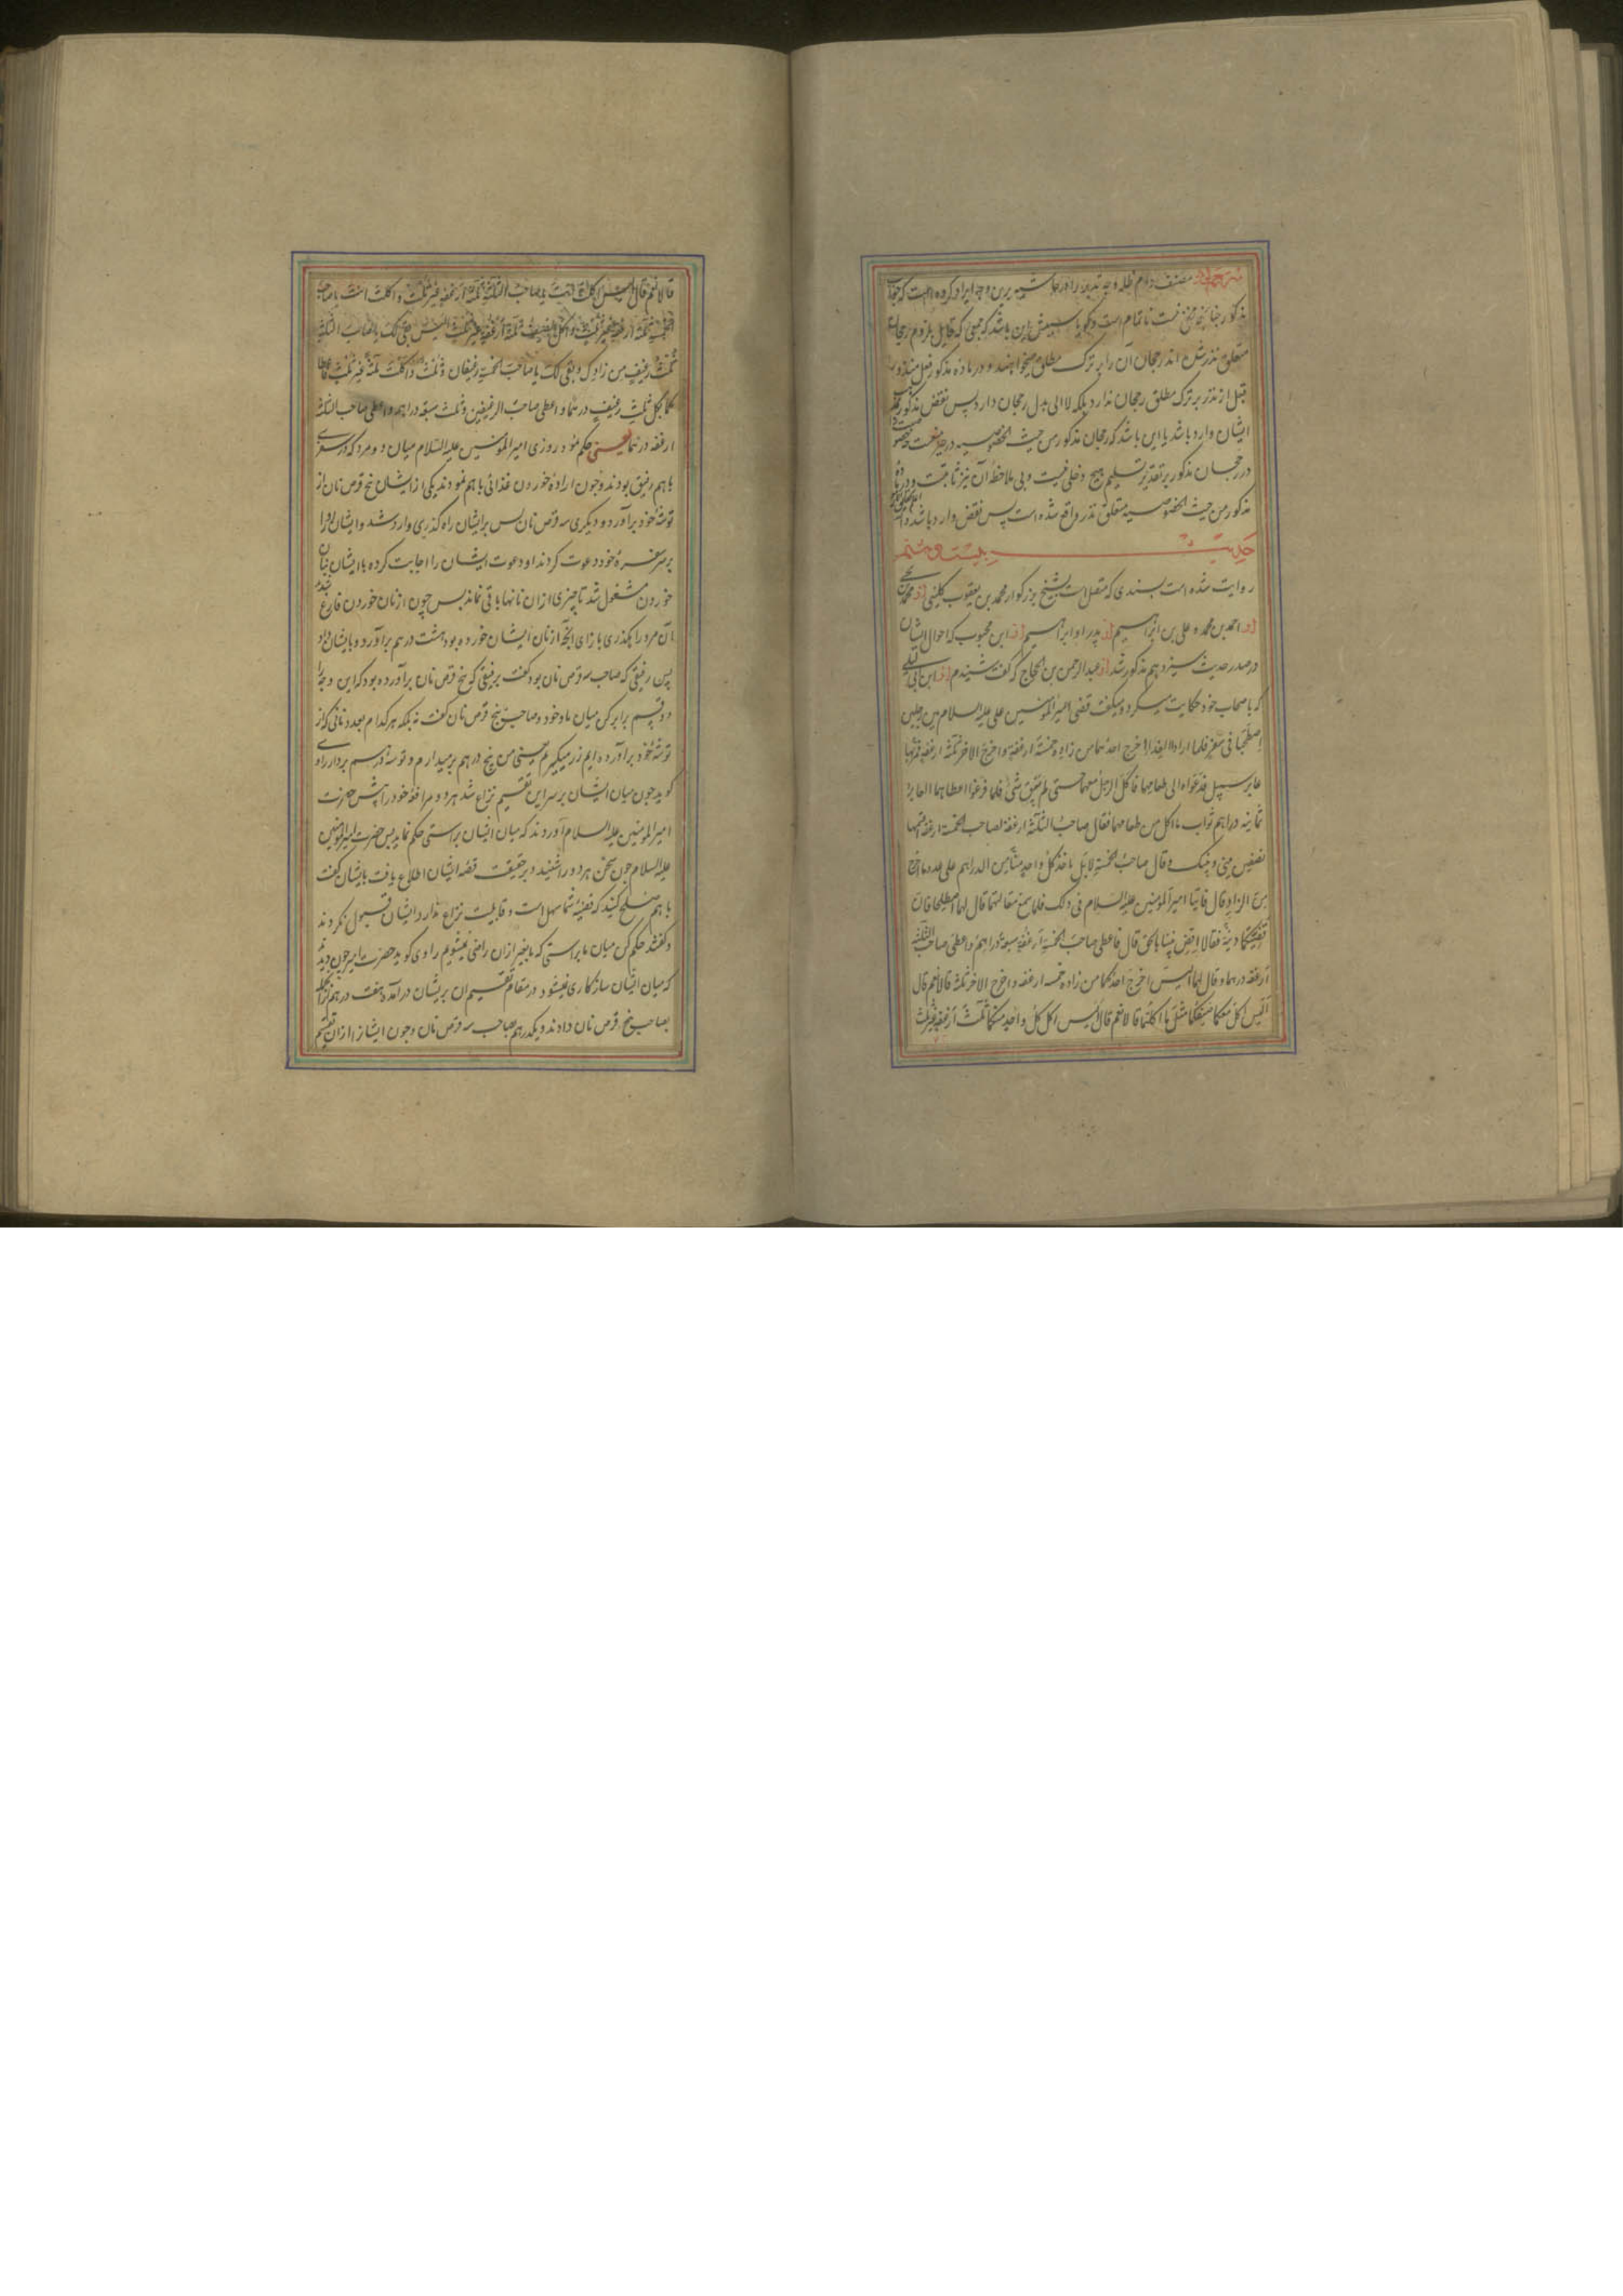 مصنف دام ظله
مذکور چنانچه
متعلق نذر شدن اند رجحان آن را بر ترک مطلق میخواهند و در ماده مذکور فعل منذور
قبل از نذر بر ترک مطلق رجحان ندارد بلکه لا الی بدل رجحان دارد پس نقض مذکور بر
ایشان وارد باشد یا این باشد که رجحان مذکور من حیث الخصوصیه در
در رجحان مذکور بر تقدیر تسلیم هیچ دخلی نیست و بی ملاحظه آن نیز ثابتست و در ماده
مذکور من حیث الخصوصیه متعلق نذر واقع شده است پس نقض وارد باشد
حدیث بیست و هشتم
روایت شده است بسندی که متصل است بشیخ بزرکوار محمد بن یعقوب کلینی از محمد بن یحیی
از احمد بن محمد و علی بن ابراهیم از پدر او ابراهیم از ابن محبوب که احوال ایشان
در صدر حدیث سیزدهم مذکور شد از عبد الرحمن بن الحجاج که گفت شنیدم از ابن ابی لیلی
که با صحاب خود حکایت میکرد و میکفت قضی امیر المومنین علی علیه السلام بین رجلین
اصطحبا فی سفر فلما ارادا الغذا اخرج احدهما من زاده خمسة ارغفة و اخرج الاخر ثلثة ارغفة فمر بهما
عابر سبیل فدعواه الی طعامهما فاکل الرجل معهما حتی لم یبق شیٔ فلما فرغوا اعطاهما العابر
ثمانیه دراهم ثواب ما اکل من طعامهما فقال صاحب الثلثة ارغفة لصاحب الخمسة ارغفة اقسمها
نصفین بینی و بینک و قال صاحب الخمسة لا بل یاخذ کل واحد منا من الدراهم علی عدد ما اخرج
من الزاد قال فاتیا امیر المومنین علیه السلام فی ذلک فلما سمع مقالتهما قال لهما اصطلحا فان
قضیتکما دنیة فقالا اقض بیننا بالحق قال فاعطی صاحب الخمسة ارغفة سبعة دراهم و اعطی صاحب الثلثة
ارغفة درهما و قال لهما الیس اخرج احدکما من زاده خمسه ارغفه و اخرج الاخر ثلثة قالا نعم قال
الیس اکل معکما ضیفکما مثل ما اکلتما قالا نعم قال الیس اکل کل واحد منکما ثلث ارغفة غیر ثلث
قالا نعم قال الیس اکلت انت یا صاحب الثلثة ثلثة ارغفة غیر ثلث و اکلت انت یا صاحب
الخمسة ثلثة ارغفة غیر ثلث و اکل الضیف ثلثة ارغفة غیر ثلث الیس بقی لک یا صاحب الثلثة
ثلث رغیف من زادک و بقی لک یا صاحب الخمسة رغیفان و ثلث و اکلت ثلثة غیر ثلث فاعطا
کما بکل ثلث رغیف درهما و اعطی صاحب الرغیفین و ثلث سبعة دراهم و اعطی صاحب الثلثة
ارغفه درهما یعنی حکم نمود روزی امیر المومنین علیه السلام میان دو مرد که در سفری
با هم رفیق بودند و چون اراده خوردن غذائی با هم نمودند یکی از ایشان پنج قرص نان از
توشه خود برآورد و دیگری سه قرص نان پس بر ایشان راه کذری وارد شد و ایشان او را
بر سر سفره خود دعوت کردند او دعوت ایشان را اجابت کرده با ایشان بنان
خوردن مشغول شد تا چیزی از ان نانها باقی نماند پس چون از نان خوردن فارغ شد
ان مرد راهکذری بازای انچه از نان ایشان خورده بود هشت درهم برآورده بایشان داد
پس رفیقی که صاحب سه قرص نان بود کفت برفیقی که پنج قرص نان برآورده بود که این وجه را
دو قسم برابر کن میان ما و خود و صاحب پنج قرص نان کفت نه بلکه هر کدام بعدد نانی که از
توشه خود برآورده ایم زر میکیریم یعنی من پنج درهم برمیدارم و تو سه درهم بردار راوی
کوید چون میان ایشان بر سر این تقسیم نزاع شد هر دو مرافعه خود را پیش حضرت
امیر المومنین علیه السلام آوردند که میان ایشان براستی حکم نماید پس حضرت امیر المومنین
علیه السلام چون سخن هر دو را شنید و بر حقیقت قصه ایشان اطلاع یافت بایشان کفت
با هم صلح کنید که قضیه شما سهل است و قابلیت نزاع ندارد ایشان قبول نکردند
و کفتند حکم کن میان ما براستی که ما بغیر از ان راضی نمیشویم راوی کوید حضرت امیر چون دید
که میان ایشان سازکاری نمیشود در مقام تقسیم ان بریشان درآمده هفت درهم از انجمله
بصاحب پنج قرص نان دادند و یکدرهم بصاحب سه قرص نان و چون ایشان را از ان تقسیم